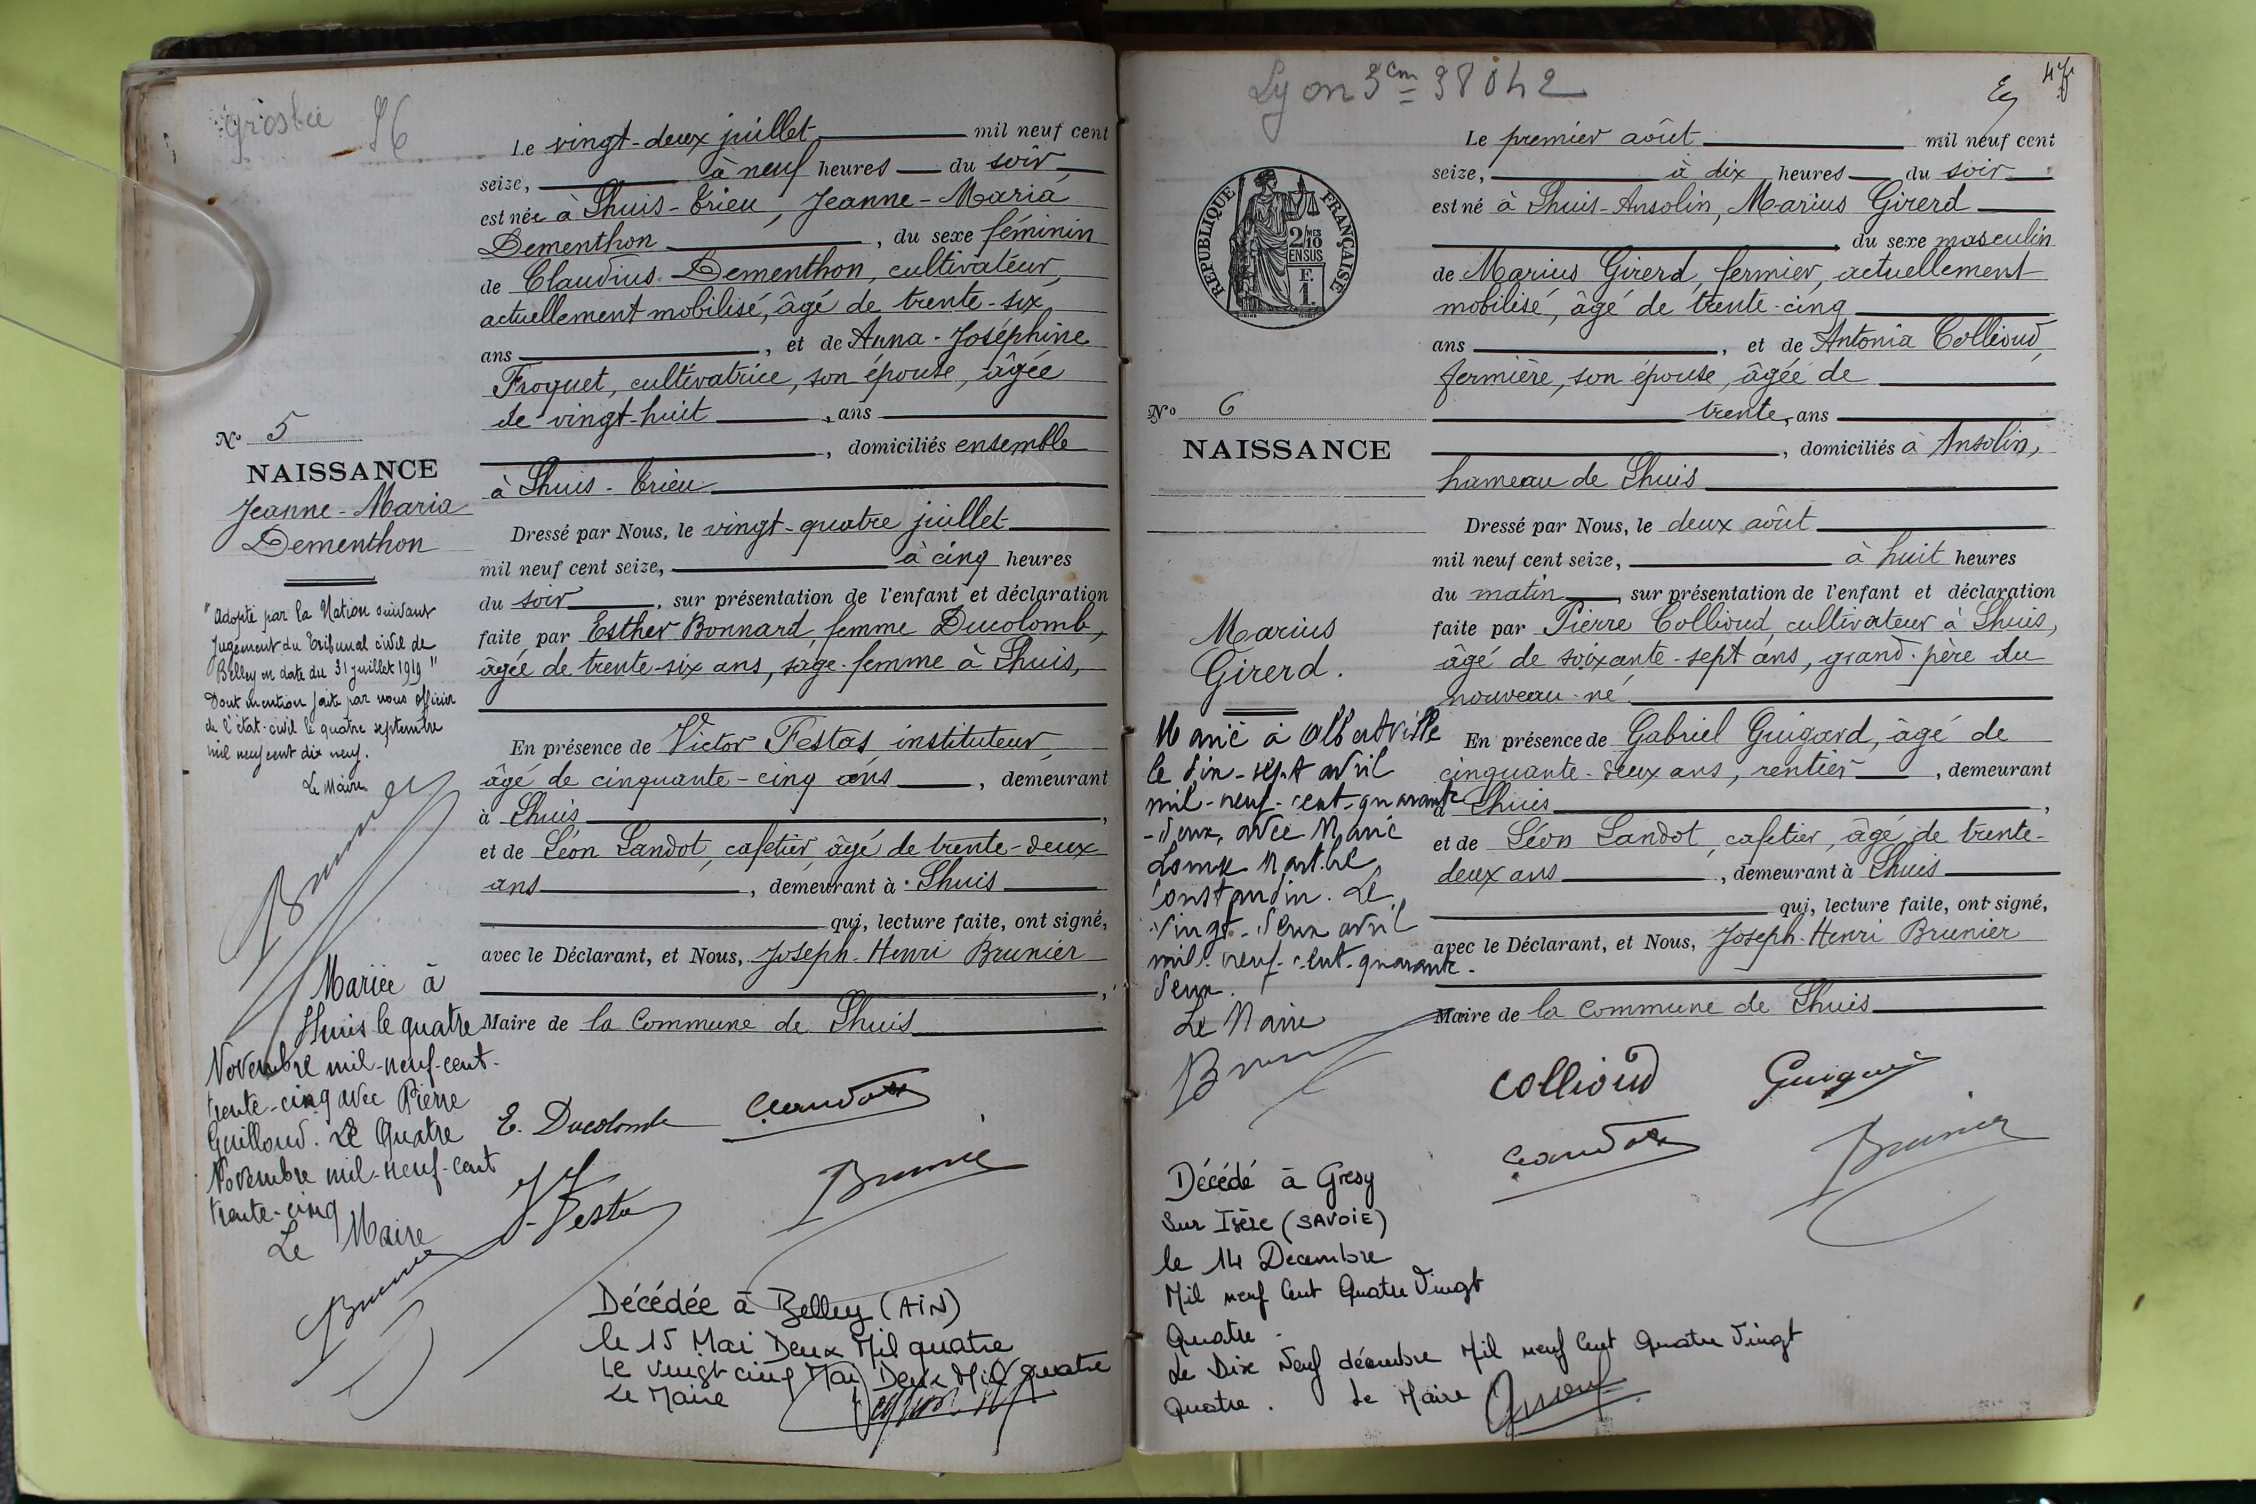 Grosbée 56
Le vingt-deux juillet mil neuf cent
seize, à neuf heures du soir
est née à Lhuis-Crieu, Jeanne-Maria
Dementhon, du sexe féminin
de Claudius Dementhon, cultivateur,
actuellement mobilisé, âgé de trente-six
ans, et de Anna-Joséphine
Froquet, cultivatrice, son épouse, âgée
de vingt-huit, ans
, domiciliés ensemble
à Lhuis-Crieu
Dressé par Nous, le vingt-quatre juillet
mil neuf cent seize, à cinq heures
du soir, sur présentation de l'enfant et déclaration
faite par Esther Bonnard, femme Ducolomb,
âgée de trente-six ans, sage-femme à Lhuis,
En présence de Victor Festas instituteur,
âgé de cinquante-cinq ans, demeurant
à Lhuis,
et de Léon Landot, cafetier, âgé de trente-deux
ans, demeurant à Lhuis
qui, lecture faite, ont signé,
avec le Déclarant, et Nous, Joseph-Henri Brunier
,
Maire de la commune de Lhuis
E. Ducolomb
Brunier
Décédée à Belley (AIN)
le 15 Mai Deux Mil quatre
Le vingt cinq Mai Deux Mil quatre
Le Maire
No 5
NAISSANCE
Jeanne-Maria
Dementhon
"Adopté par la Nation suivant
Jugement du Tribunal civil de
Belley en date du 31 juillet 1919"
Dont mention faite par nous officier
de l'état-civil le quatre septembre
mil neuf cent dix neuf.
Le Maire
Brunier
Mariée à
Lhuis le quatre
Novembre mil-neuf-cent-
trente-cinq avec Pierre
Guilloud. Le Quatre
Novembre mil-neuf-cent
trente-cinq
Le Maire
Brunier
Lyon 3cm = 38042
47
RÉPUBLIQUE FRANÇAISE
2/10MES
EN SUS
F.
1.
Le premier août mil neuf cent
seize, à dix heures du soir
est né à Lhuis-Ansolin, Marius Girerd
, du sexe masculin
de Marius Girerd, fermier, actuellement
mobilisé, âgé de trente-cinq
ans, et de Antonia Collioud,
fermière, son épouse, âgée de
trente, ans
, domiciliés à Ansolin,
hameau de Lhuis
Dressé par Nous, le deux août
mil neuf cent seize, à huit heures
du matin, sur présentation de l'enfant et déclaration
faite par Pierre Collioud, cultivateur à Lhuis,
âgé de soixante-sept ans, grand-père du
nouveau-né
En présence de Gabriel Guigard, âgé de
cinquante-deux ans, rentier, demeurant
à Lhuis,
et de Léon Landot, cafetier, âgé de trente-
deux ans, demeurant à Lhuis
qui, lecture faite, ont signé,
avec le Déclarant, et Nous, Joseph-Henri Brunier
Maire de la commune de Lhuis
Collioud Guigard
Brunier
No 6
NAISSANCE
Marius
Girerd.
Marié à Albertville
le dix-sept avril
mil-neuf-cent-quarante
-deux, avec Marie
Louise Marthe
Constantin. Le
vingt-deux avril
mil-neuf-cent-quarante-
deux.
Le Maire
Décédé à Gresy
Sur Isère (SAVOIE)
le 14 Decembre
Mil neuf Cent Quatre Vingt
Quatre.
Le Dix Neuf décembre Mil neuf Cent Quatre Vingt
Quatre. Le Maire